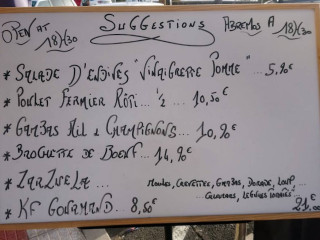 OPEN AT 18H30
SUGGESTIONS
ABRIMOS A 18H30
* SALADE D'ENDIVES "VINAIGRETTE POMME" ... 5,90€
* POULET FERMIER RÔTI ... ½ ... 10,50€
* GAMBAS AIL & CHAMPIGNONS ... 10,90€
* BROCHETTE DE BOEUF ... 14,90€
* ZARZUELA ... MOULES, CREVETTES, GAMBAS, DORADE, LOUP ...
... CALAMARS, LÉGUMES 21,00€
* KF GOURMAND .. 8,50€